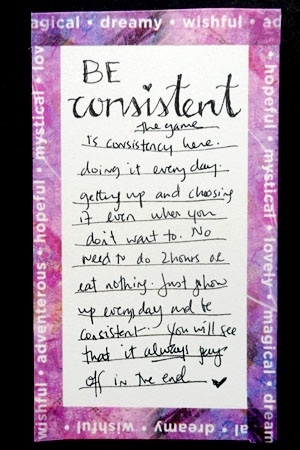 agical • dreamy • wishful • al
BE
consistent
The game
is consistency here.
doing it every day.
getting up and choosing
it even when you
don't want to. No
need to do 2 hours or
eat nothing. Just show
up everyday and be
consistent. You will see
that it always pay
off in the end
wishful • adventerous • hopeful • mystical • lov
hopeful • mystical • lovely • magical • dream
wishful • dreamy • al